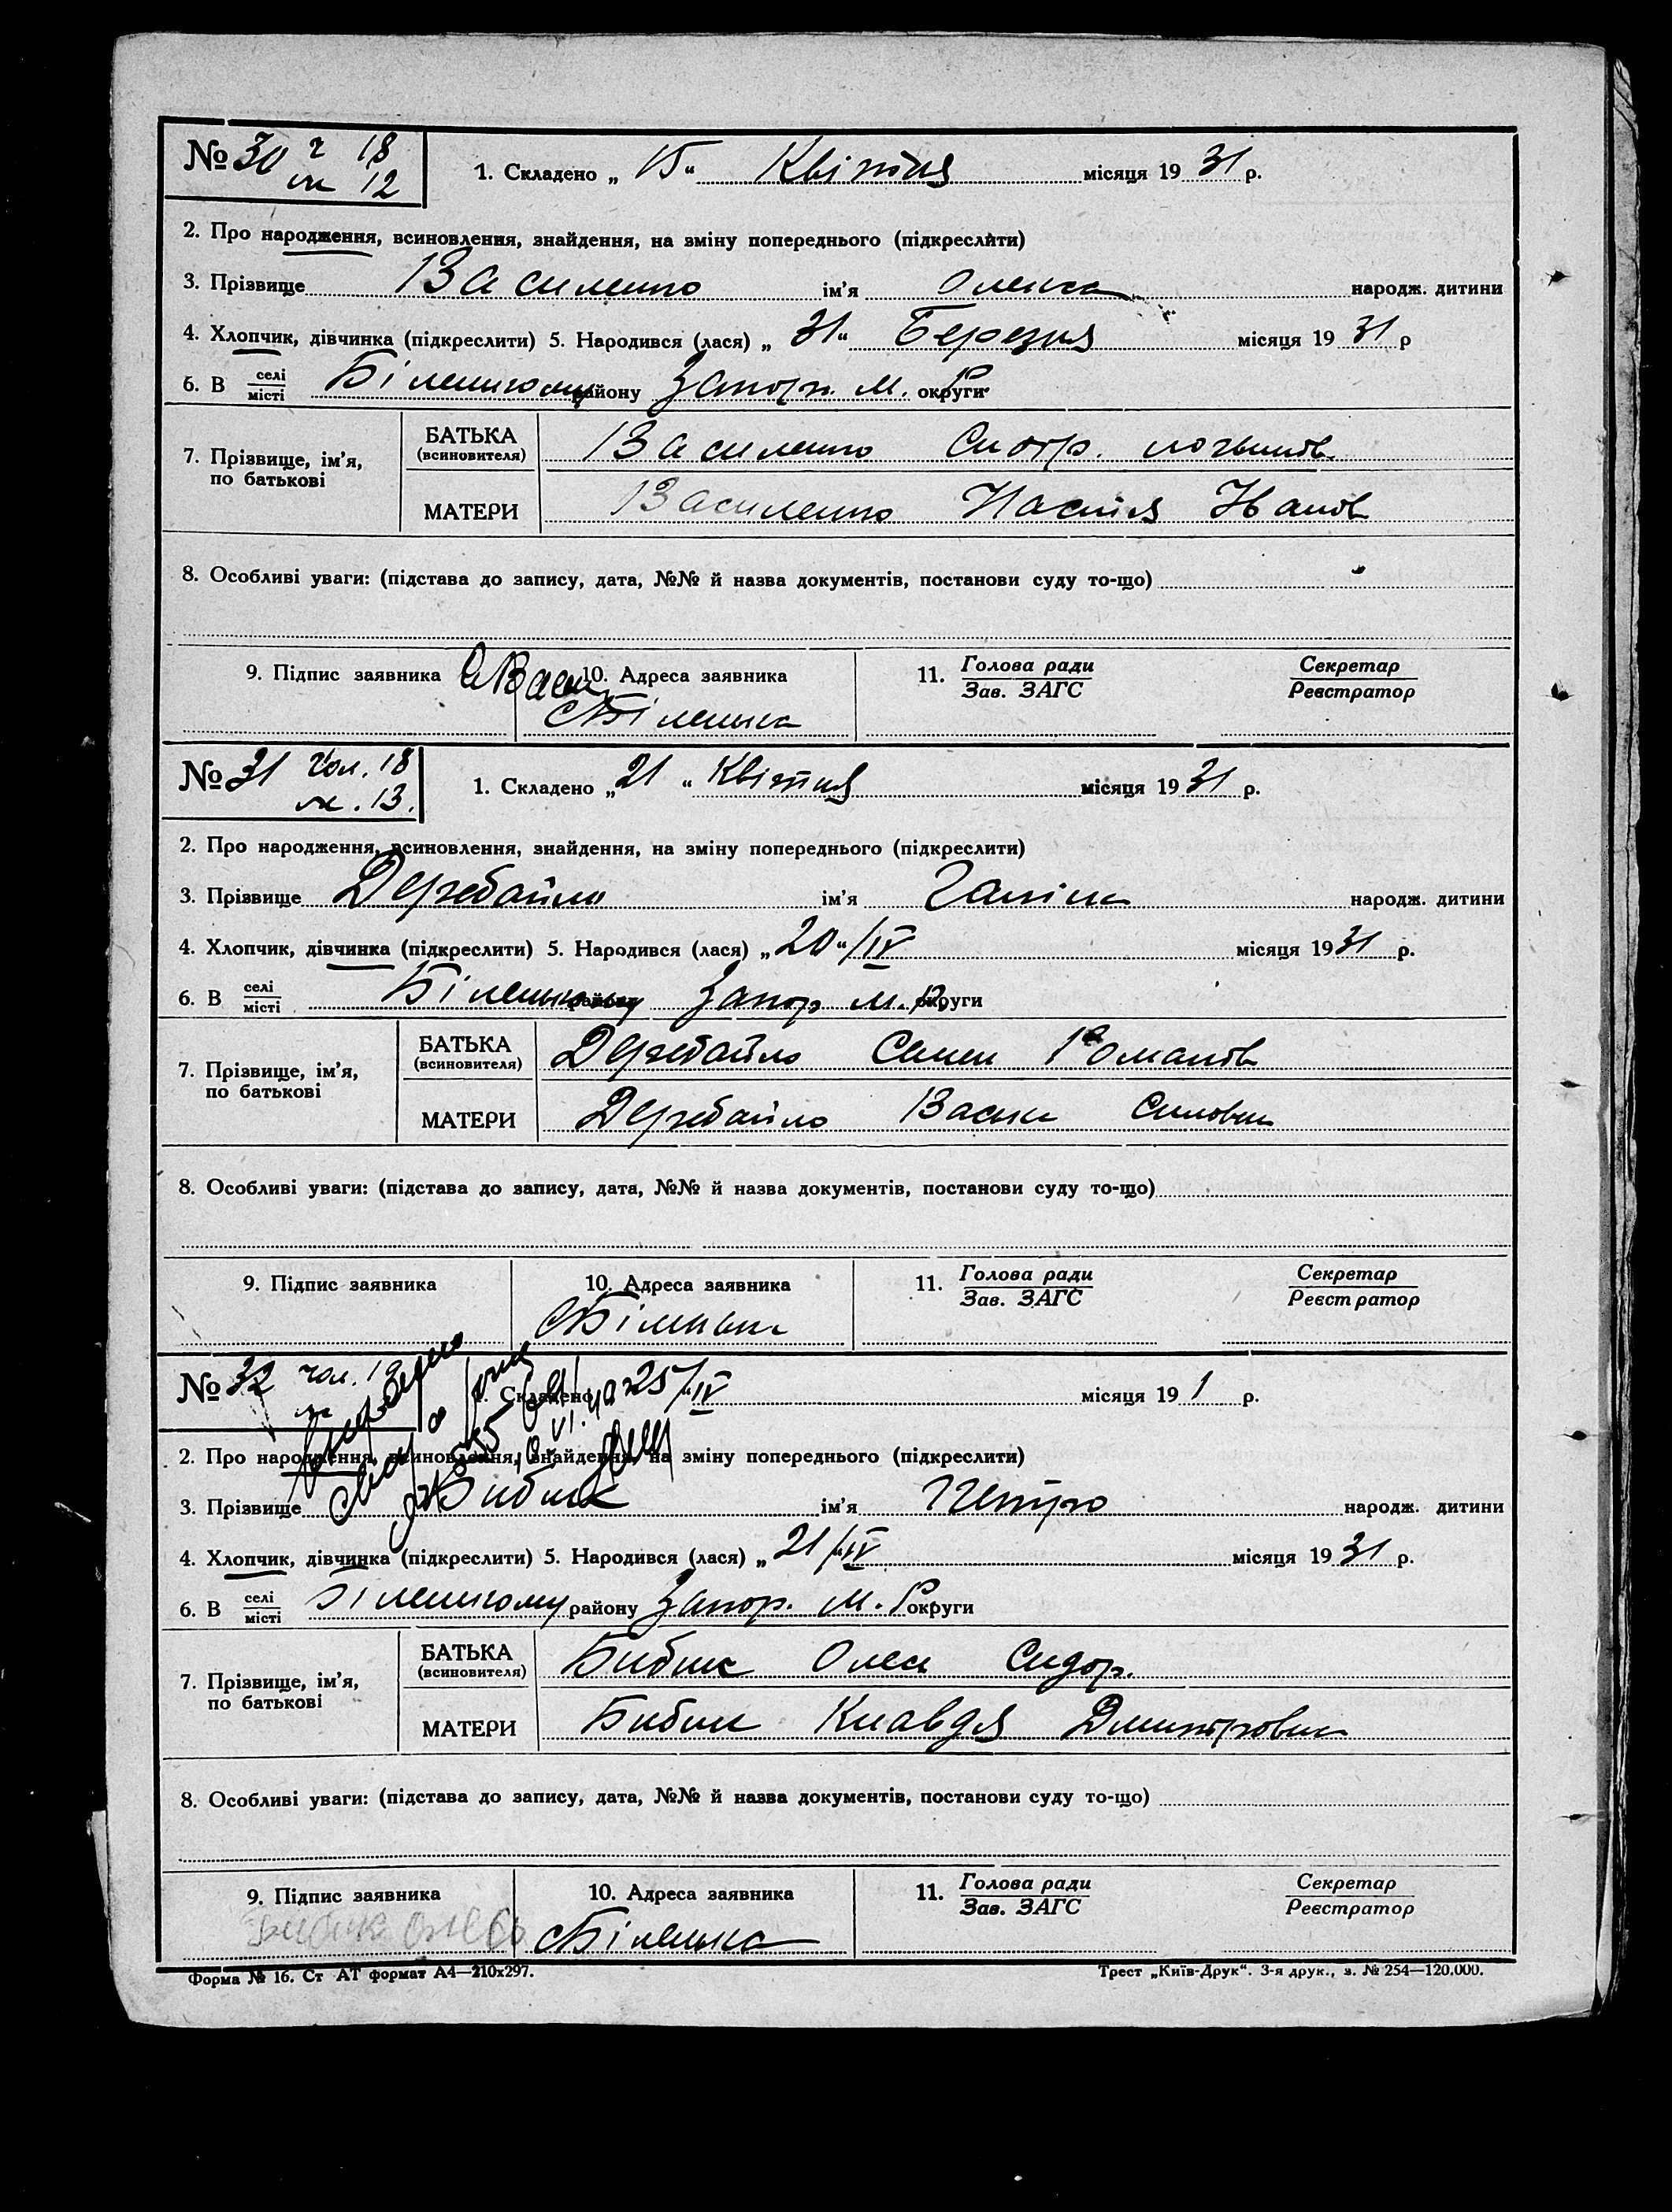 № 30 ч 18
ж 12
1. Складено „ 15 “ Квітня місяця 19 31 р.
2. Про народження, всиновлення, знайдення, на зміну попереднього (підкреслити)
3. Прізвище Василенко ім'я Олекса народж. дитини
4. Хлопчик, дівчинка (підкреслити) 5. Народився (лася) „ 31 “ Березня місяця 19 31 р
6. В селі/місті Біленькому району Запор. м. Р округи
7. Прізвище, ім'я, по батькові
БАТЬКА (всиновителя) Василенко
МАТЕРИ Василенко Настя Іванов
8. Особливі уваги: (підстава до запису, дата, №№ й назва документів, постанови суду то-що)
9. Підпис заявника
10. Адреса заявника
11. Голова ради / Зав. ЗАГС
Секретар / Реєстратор
с Біленька
№ 31 чол. 18
ж. 13.
1. Складено „ 21 “ Квітня місяця 19 31 р.
2. Про народження, всиновлення, знайдення, на зміну попереднього (підкреслити)
3. Прізвище Держбайло ім'я Галина народж. дитини
4. Хлопчик, дівчинка (підкреслити) 5. Народився (лася) „ 20 “ /IV місяця 19 31 р.
6. В селі/місті Біленькому району Запор м. Р. округи
7. Прізвище, ім'я, по батькові
БАТЬКА (всиновителя) Семен Романов
МАТЕРИ
8. Особливі уваги: (підстава до запису, дата, №№ й назва документів, постанови суду то-що)
9. Підпис заявника
10. Адреса заявника
11. Голова ради / Зав. ЗАГС
Секретар / Реєстратор
с Біленька
№ 32 чол. 19
ж
1. Складено „ 25/IV місяця 19 1 р.
2. Про народження, всиновлення, знайдення, на зміну попереднього (підкреслити)
3. Прізвище Бибик ім'я Петро народж. дитини
4. Хлопчик, дівчинка (підкреслити) 5. Народився (лася) „ 21/IV місяця 19 31 р.
6. В селі/місті Біленькому району Запор. м. Р округи
7. Прізвище, ім'я, по батькові
БАТЬКА (всиновителя) Бибик Олекс Сидор.
МАТЕРИ Бибик Клавдя Дмитровна
8. Особливі уваги: (підстава до запису, дата, №№ й назва документів, постанови суду то-що)
9. Підпис заявника
10. Адреса заявника
11. Голова ради / Зав. ЗАГС
Секретар / Реєстратор
Бибик
с Біленька
Форма № 16. Ст АТ формат А4—210х297.
Трест „Київ-Друк“. 3-я друк., з. № 254—120.000.